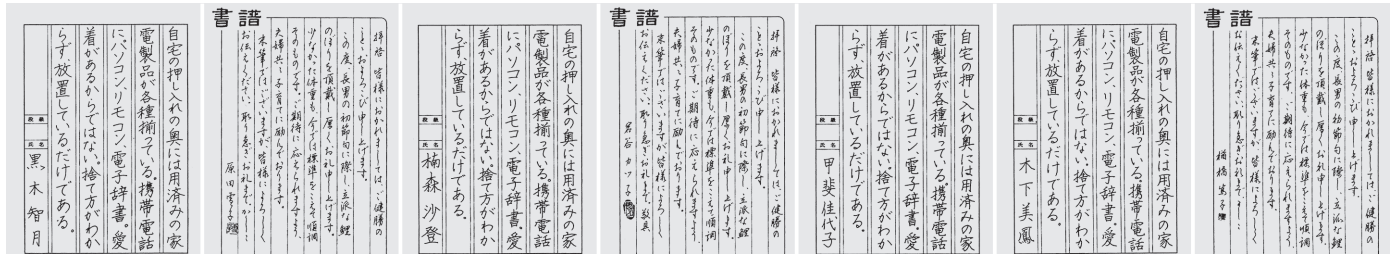 自宅の押し入れの奥には用済みの家
電製品が各種揃っている。携帯電話
にパソコン、リモコン、電子辞書。愛
着があるからではない。捨て方がわか
らず、放置しているだけである。
段級
氏名 黒木智月
書譜
拝啓 皆様におかれましては、ご健勝の
こととおよろこび申し上げます。
この度、長男の初節句に際し、立派な鯉
のぼりを頂戴し厚くお礼申し上げます。
少なかった体重も、今では標準をこえて順調
そのものです。ご期待に応えられますよう、
夫婦共々子育てに励んでおります。
末筆ではございますが皆様によろしく
お伝えください。取り急ぎお礼まで。かしこ
原田雪子
自宅の押し入れの奥には用済みの家
電製品が各種揃っている。携帯電話
にパソコン、リモコン、電子辞書。愛
着があるからではない。捨て方がわか
らず、放置しているだけである。
段級
氏名 楠森沙登
書譜
拝啓 皆様におかれましては、ご健勝の
こととおよろこび申し上げます。
この度、長男の初節句に際し、立派な鯉
のぼりを頂戴し厚くお礼申し上げます。
少なかった体重も、今では標準をこえて順調
そのものです。ご期待に応えられますよう、
夫婦共々子育てに励んでおります。
末筆ではございますが皆様によろしく
お伝えください。取り急ぎお礼まで。敬具
自宅の押し入れの奥には用済みの家
電製品が各種揃っている。携帯電話
にパソコン、リモコン、電子辞書。愛
着があるからではない。捨て方がわか
らず、放置しているだけである。
段級
氏名 甲斐佳代子
自宅の押し入れの奥には用済みの家
電製品が各種揃っている。携帯電話
にパソコン、リモコン、電子辞書。愛
着があるからではない。捨て方がわか
らず、放置しているだけである。
段級
氏名 木下美鳳
書譜
拝啓 皆様におかれましては、ご健勝の
こととおよろこび申し上げます。
この度、長男の初節句に際し、立派な鯉
のぼりを頂戴し厚くお礼申し上げます。
少なかった体重も、今では標準をこえて順調
そのものです。ご期待に応えられますよう、
夫婦共々子育てに励んでおります。
末筆ではございますが皆様によろしく
お伝えください。取り急ぎお礼まで。かしこ